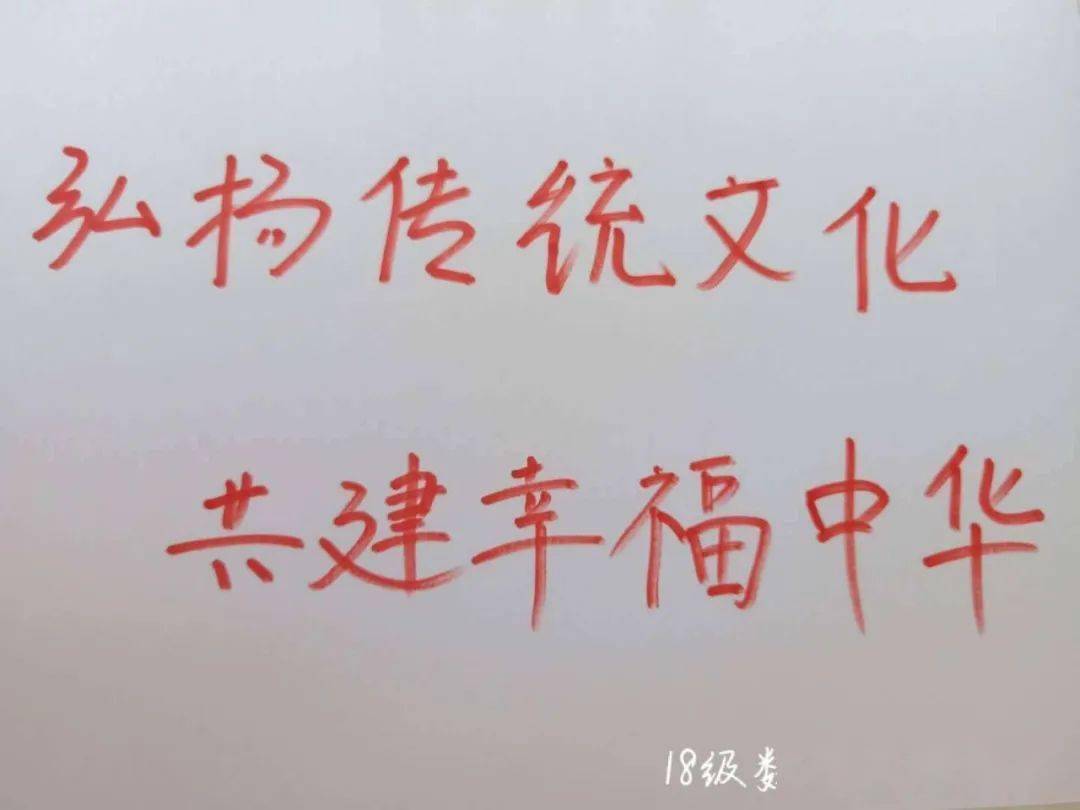 弘扬传统文化
共建幸福中华
18级娄